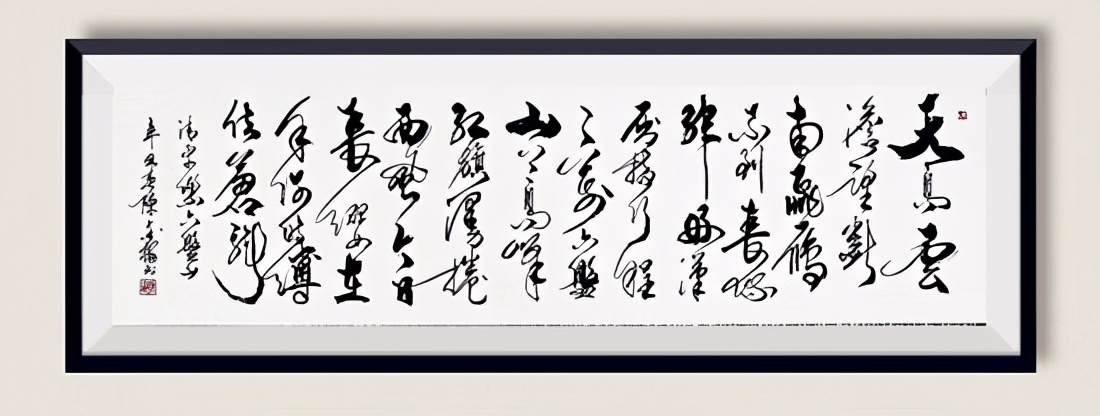 天高雲
澹望斷
南飛雁
不到長城
非好漢
屈指行程
二萬六盤
山上高峰
紅旗漫捲
西風今日
長纓在
手何時縛
住蒼龍
清平樂六盤山
辛丑 陳 書